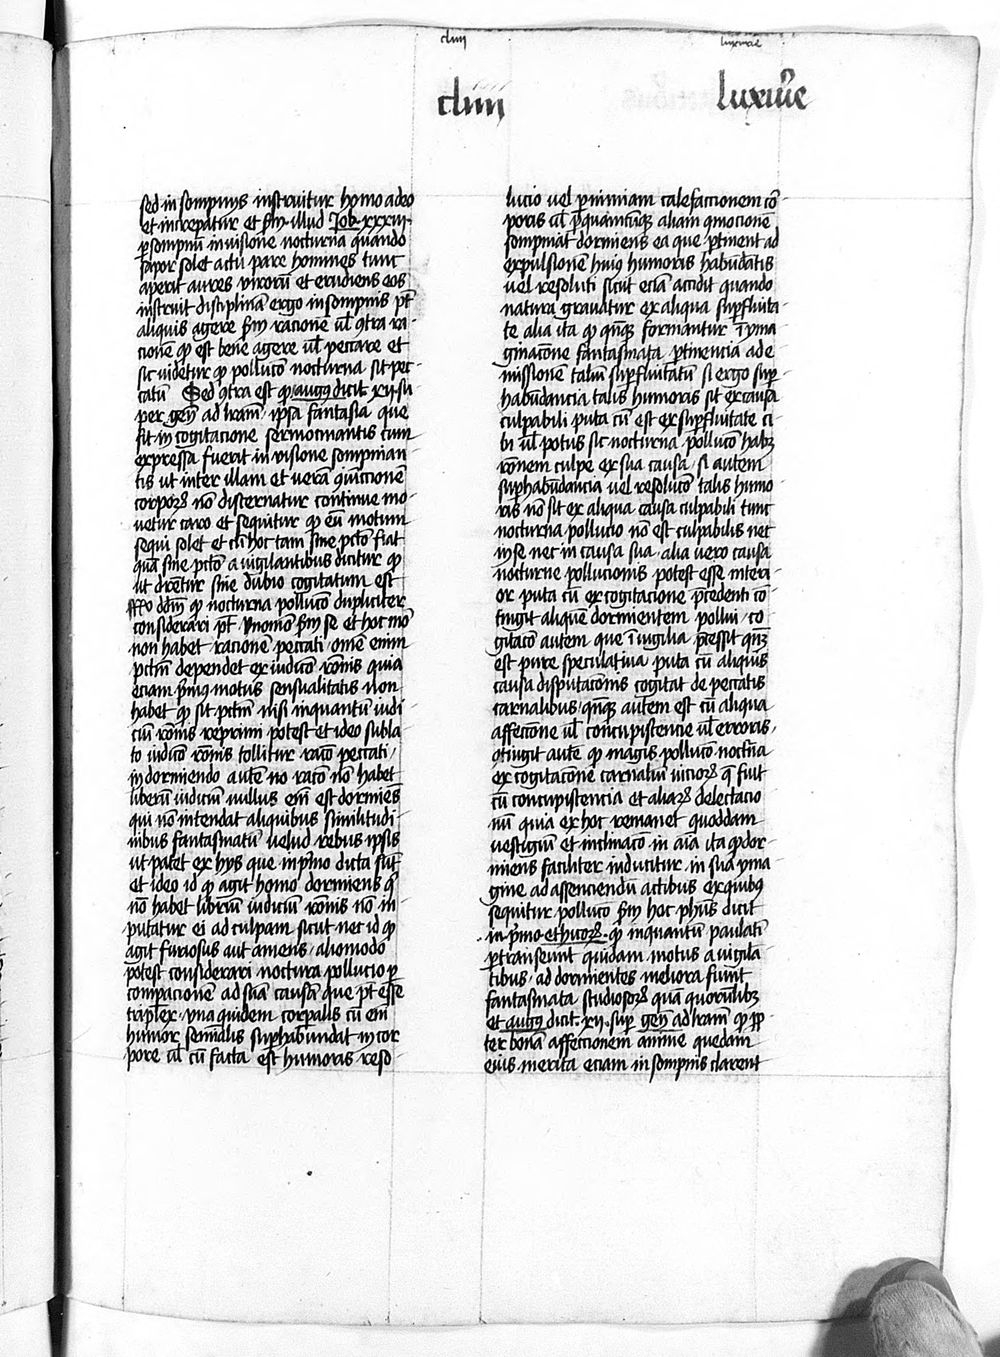 cliiij
luxurie
cliiij
luxurie
sed in sompnijs instruitur homo a deo
et increpatur et scdm illud Job xxxiij
per sompnū in visione nocturna quando
sopor solet actu pare homines tunc
aperit aures virorū et erudiens eos
instruit disciplina ergo in sompnis pt̄
aliquis agere scdm racione ul̄ 9tra ra
cionē qd est bene agere ul̄ peccare et
sic videtur qp pollucō nocturna sit pec
catū Sed 9tra est qp augꝰ dicit xij su
per gen̄ ad lram̄ ipsa fantasia que
fit in cogitacione sermocinantis cum
expressa fuerit in visione sompnian
tis ut inter illam et verā 9iūctionē
corporꝝ nō discernatur continue mo
uetur caro et sequitur qp eū motum
sequi solet et cū hoc tam sine pctō fiat
quā sine pctō a vigilantibus dicitur qp
ut dicētur sine dubio cogitatum est
dd̄m qp nocturna pollucō dupliciter
considerari pt̄ vnomō scdm se et hoc mō
non habet racionē peccati omē enim
pctm̄ dependet ex iudicō rōnis quia
eciam p̄mꝰ motus sensualitatis non
habet qp sit pctm̄ nisi inquantū iudi
ciū rōnis reprimi potest et ideo subla
to iudicō rōnis tollitur racō peccati
in dormiendo autē no racō nō habet
liberū iudiciū nullus em̄ est dormiēs
qui nō intendat aliquibus similitudi
nibus fantasmatū velud rebus ipsis
ut patet ex hijs que in p̄mo dicta sūt
et ideo id qp agit homo dormiens q̄
nō habet liberū iudiciū rōnis nō in
putatur ei ad culpam sicut nec id qp
agit furiosus aut amens aliomodo
potest considerari noctura pollucio p
compacionē ad suā causam que pt̄ esse
triplex vna quidem corpalis cū em̄
humor semīalis suphabūndat in cor
pore ul̄ cū facta est humoris reso
lucio vel p nimiam calefactionem cō
poris ul̄ p quamcūqꝫ aliam 9mocionē
sompniat dormiens ea que ptinent ad
expulsionē huiꝰ humoris habūdātis
vel resoluti sicut eciā accidit quando
natura grauatur ex aliqua supfluita
te alia ita qp qn̄qꝫ formantur ī yma
ginacōne fantasmata ptinencia ad e
missionē taliū supfluitatū si ergo sup
habūdancia talis humoris sit ex causa
culpabili puta cū est ex supfluitate ci
bi ul̄ potus sic nocturna pollucō habꝫ
rōnem culpe ex sua causa si autem
suphabūdancia vel resolucō talis humo
ris nō sit ex aliqua causa culpabili tunc
nocturna pollucio nō est culpabilis nec
in se nec in causa sua alia vero causa
nocturne pollucionis potest esse interi
or puta cū ex cogitacione p̄cedenti cō
tingit aliquē dormientem pollui co
gitacō autem que ī vigilia p̄cessit qn̄qꝫ
est pure speculatiua puta cū aliquis
causa disputacōnis cogitat de peccatis
carnalibus qn̄qꝫ autem est cū aliqua
affectione ul̄ concupiscencie ul̄ erroris
9tingit autē qp magis pollucō noctn̄a
ex cogitacōne carnaliū viciorꝝ q̄ fuit
cū concupiscencia et aliarꝝ delectacio
nū quia ex hoc remanet quoddam
vestigiū et inclinacō in aīa ita qp dor
miens faciliter inducitur in sua yma
gine ad assenciendū actibus ex quibꝰ
sequitur pollucō scdm hoc ph̄us dicit
in p̄mo ethicorꝝ qp inquantū paulati
ptranseunt quidam motus a vigilā
tibus ad dormientes meliora fiunt
fantasmata studiosorꝝ quā quorūlibꝫ
et augꝰ dicit xij sup gen̄ ad lram̄ qp pp
ter bonā affectionem anime quedam
eius merita eciam in sompnis clarent